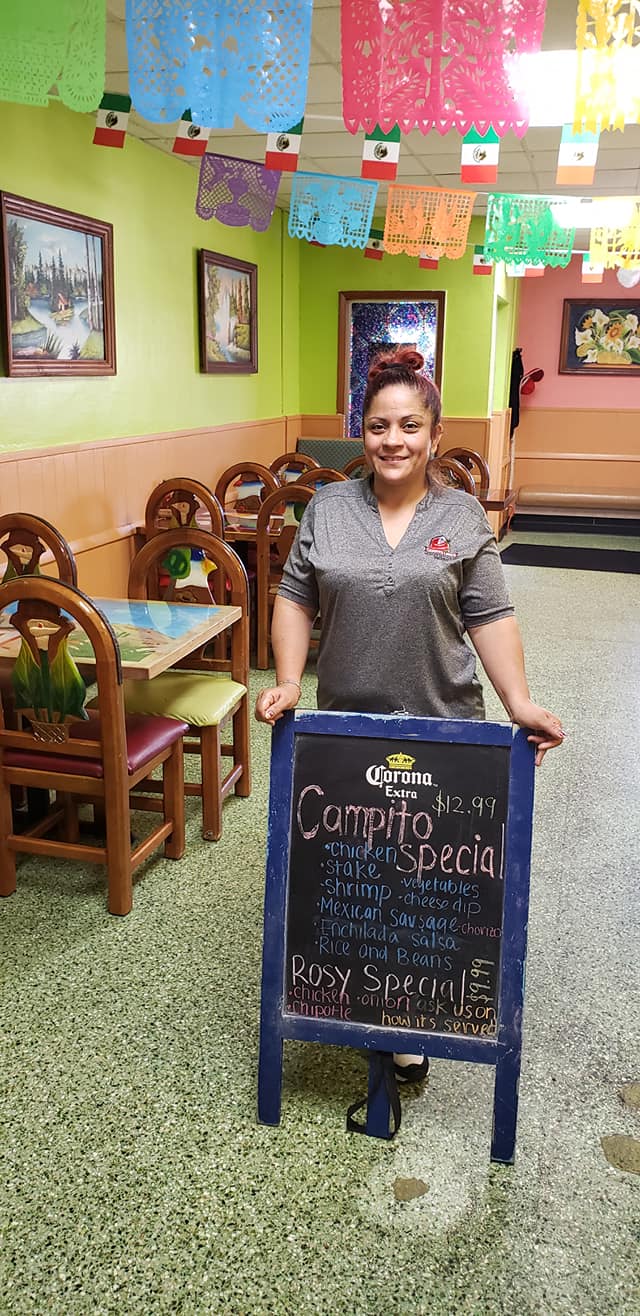 Corona
Extra
$12.99
Campito
Special
•chicken
•stake •vegetables
•Shrimp •cheese dip
•Mexican Sausage •chorizo
•Enchilada salsa
•Rice and Beans
Rosy Special $9.99
•chicken •onion ask us on
•chipotle how its served